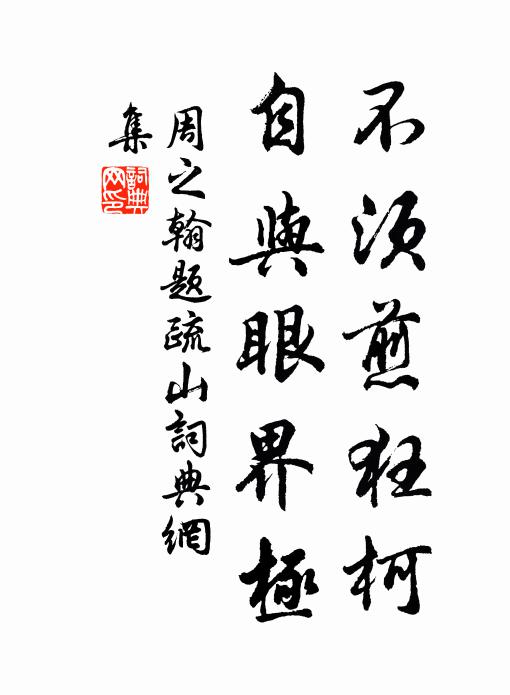 不須煎狂柯
自與眼界極
周之翰題疏山詞典網
集
詞典網印